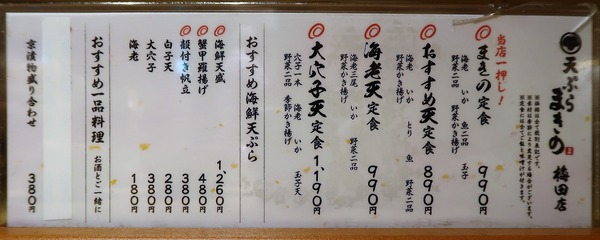 天ぷら
まきの 梅田店
※価格は全て税別表記です。
当店一押し!
まきの定食 990円
海老 いか 魚二品 玉子
野菜二品 野菜かき揚げ
おすすめ天定食 890円
海老 いか とり 魚 野菜二品
野菜かき揚げ
海老天定食 990円
海老三尾 いか 野菜二品
野菜かき揚げ
大穴子天定食 1,190円
穴子一本 海老 いか 玉子天
野菜二品 季節かき揚げ
おすすめ海鮮天ぷら
海鮮天盛 1,260円
蟹甲羅揚げ 480円
殻付き帆立 380円
白子天 280円
大穴子 380円
海老 180円
おすすめ一品料理 お酒とご一緒に
京漬物盛り合わせ 380円